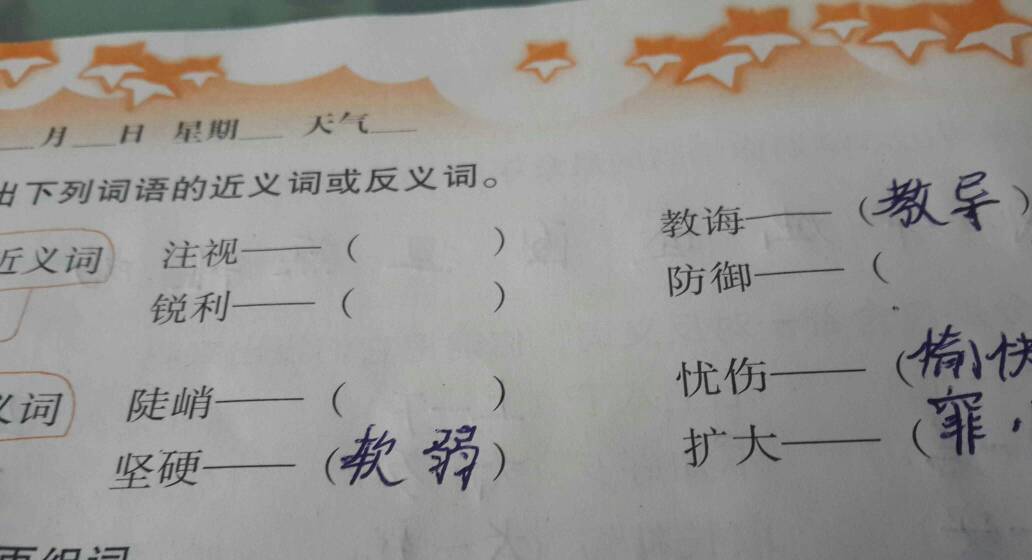 月 日 星期 天气
出下列词语的近义词或反义词。
近义词 注视——（ ） 教诲——（教导）
锐利——（ ） 防御——（
义词 陡峭——（ ） 忧伤——（愉快
坚硬——（软弱） 扩大——（